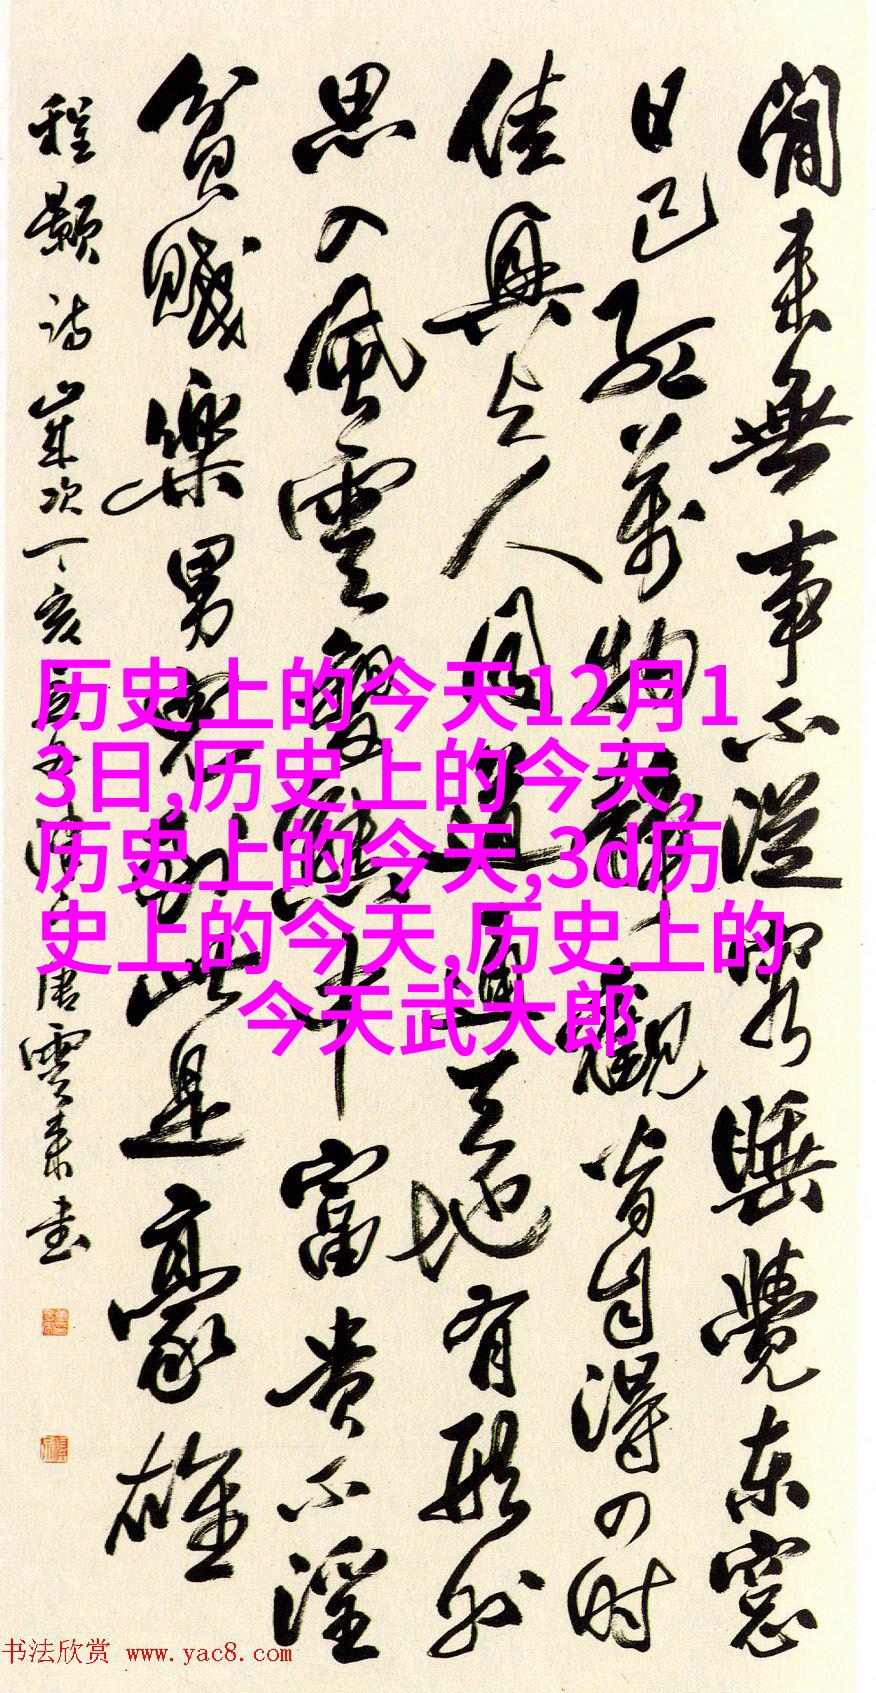 閒来無事不從容睡覺东窓
日已红萬物静觀皆自得四时
佳興与人同道通天地有形外
思入風雲變態中富贵不淫
貧贱樂男兒到此是豪雄
程颢诗岁次丁亥
唐雲来书
历史上的今天12月1
3日,历史上的今天,
历史上的今天,3d历
史上的今天,历史上的
今天武大郎
书法欣赏 www.yac8.com